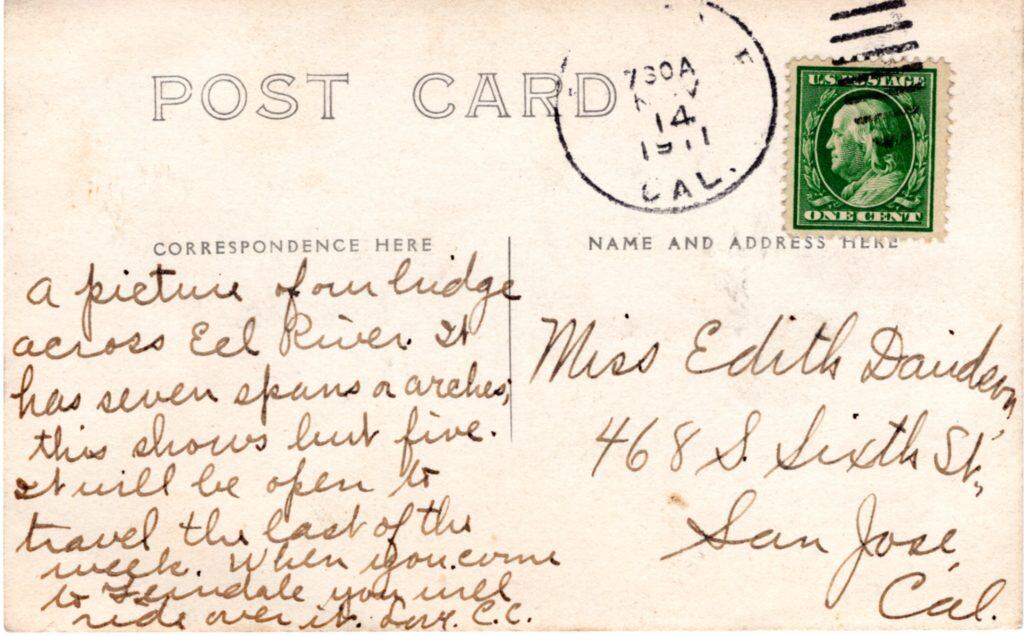 POST CARD
730A
NOV
14
1911
CAL.
U.S. POSTAGE
ONE CENT
CORRESPONDENCE HERE
NAME AND ADDRESS HERE
A picture of our bridge
across Eel River. It
has seven spans or arches,
this shows but five.
It will be open to
travel the last of the
week. When you come
to Ferndale you will
ride over it. Love. C.C.
Miss Edith Davidson,
468 S. Sixth St.,
San José,
Cal.